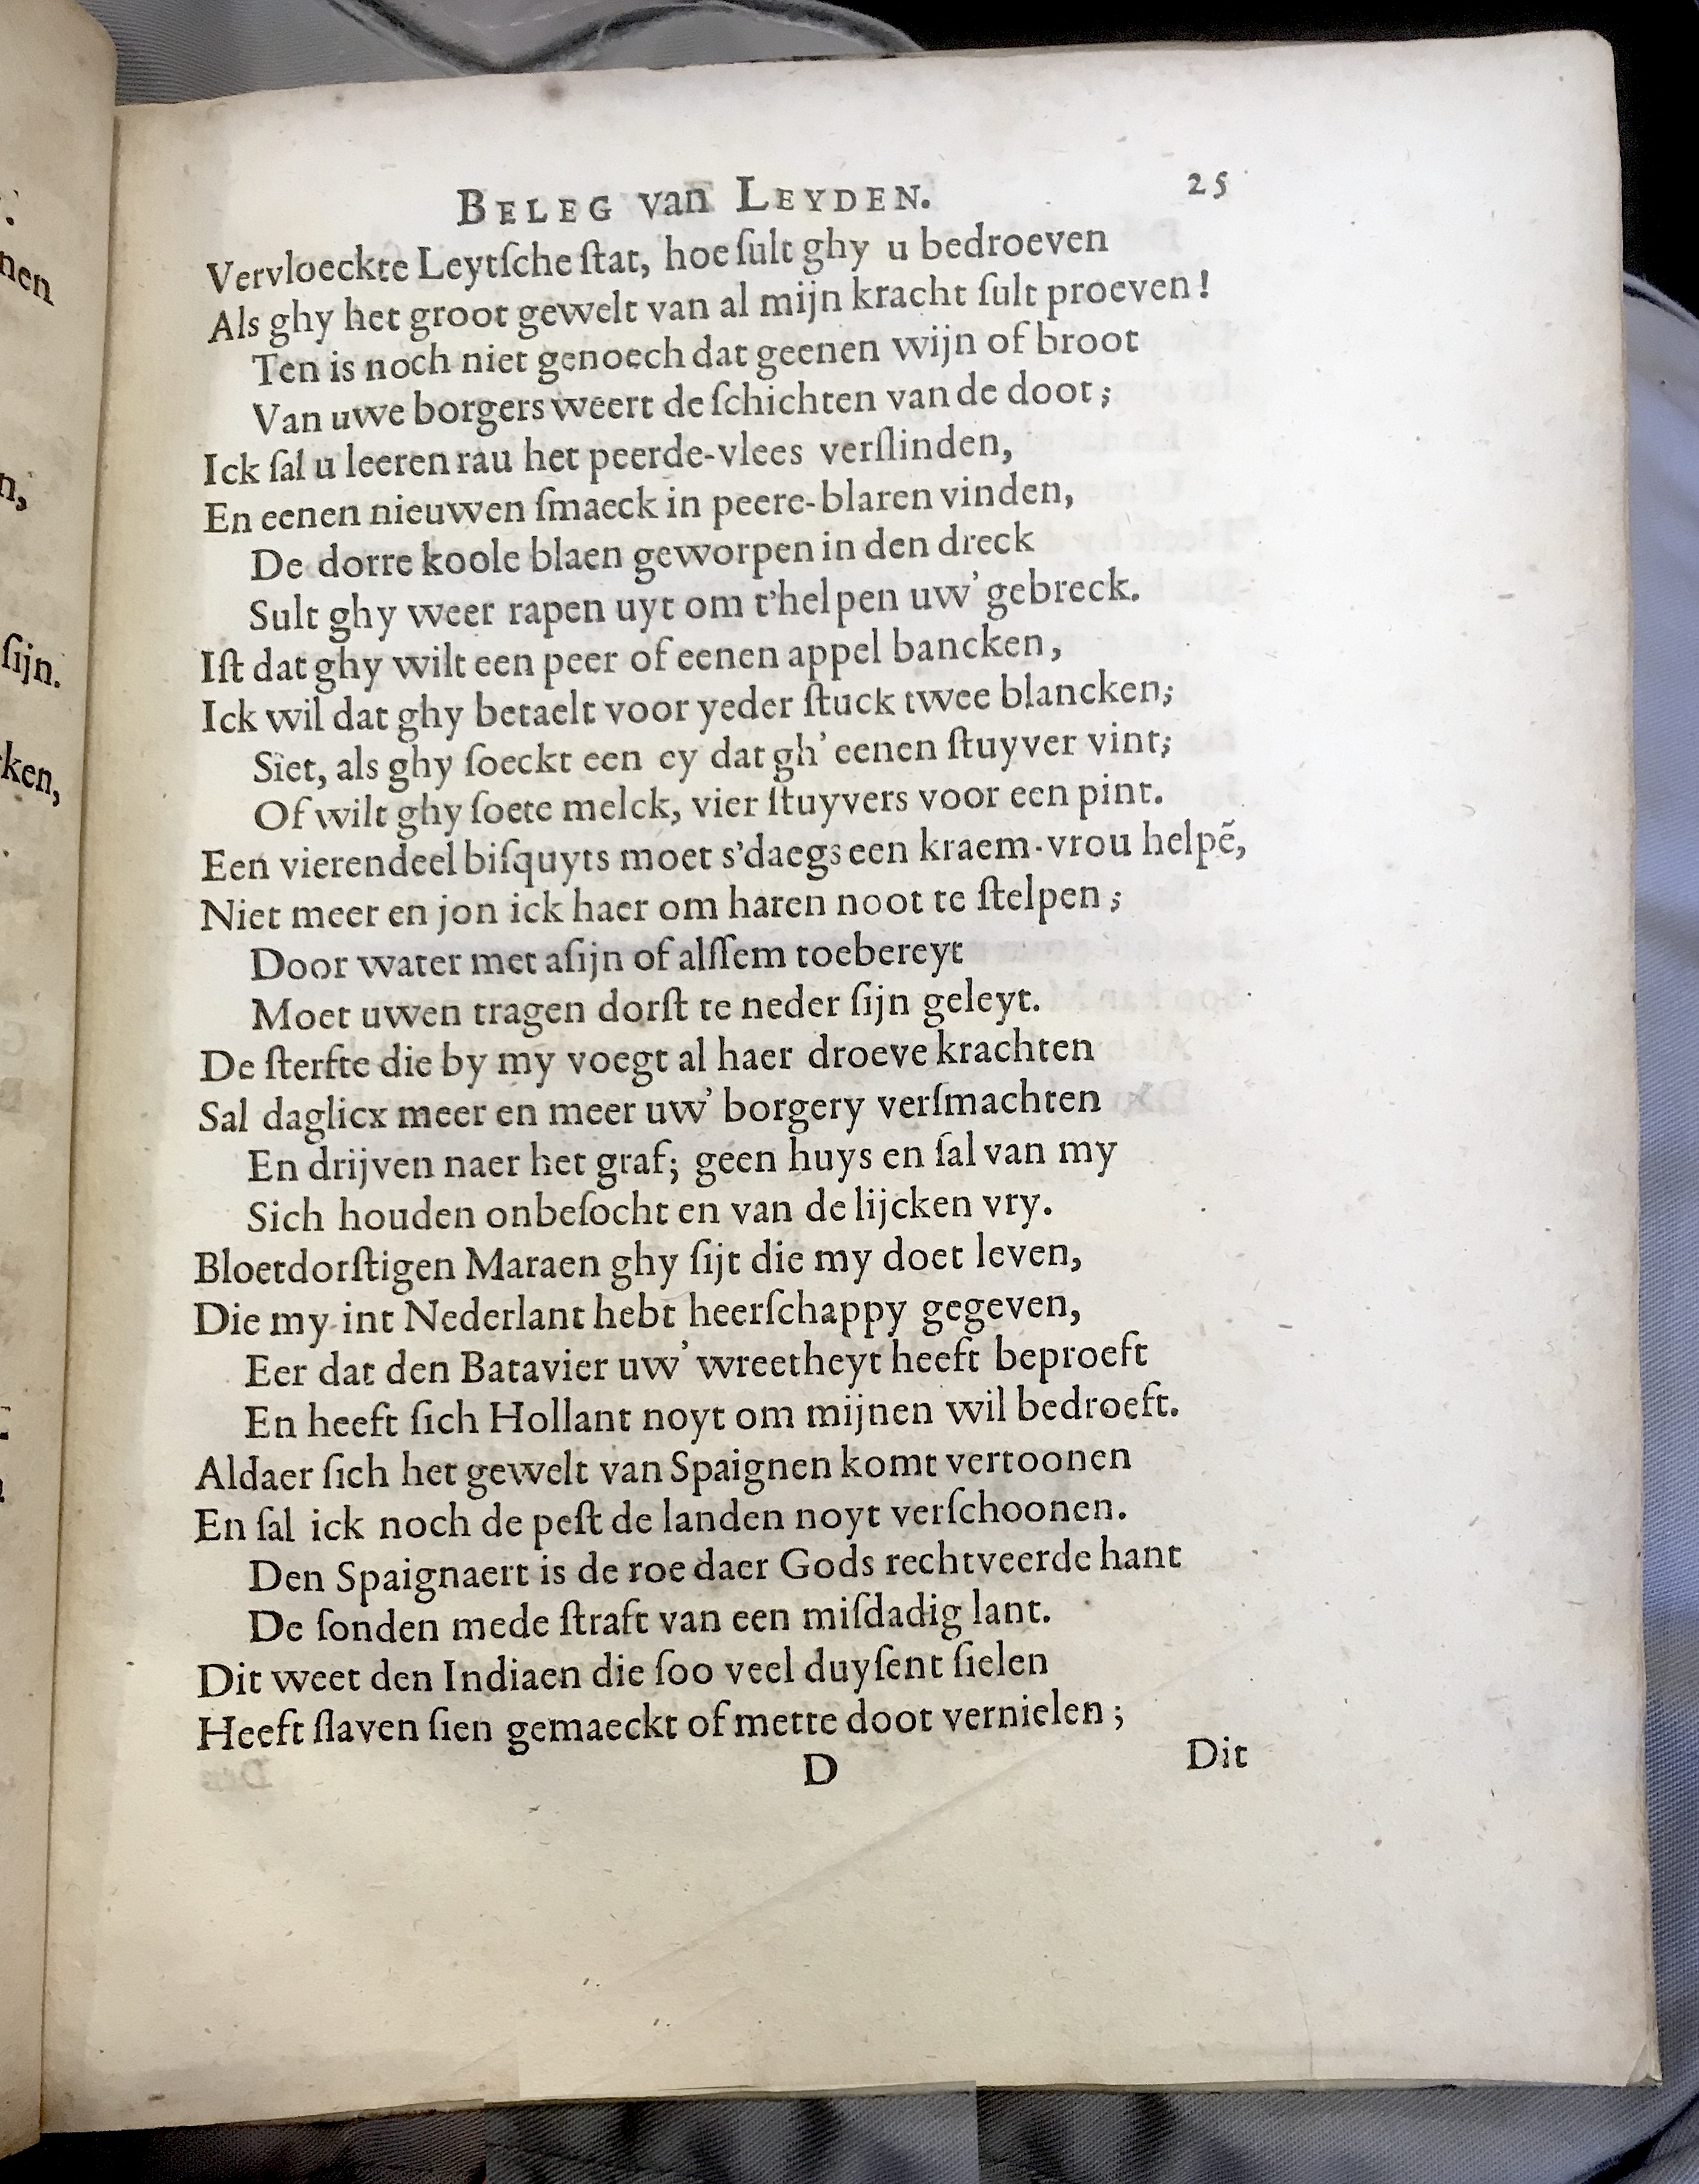 BELEG van LEYDEN. 25
Vervloeckte Leytſche ſtat, hoe ſult ghy u bedroeven
Als ghy het groot gewelt van al mijn kracht ſult proeven!
Ten is noch niet genoech dat geenen wijn of broot
Van uwe borgers weert de ſchichten van de doot;
Ick ſal u leeren rau het peerde-vlees verſlinden,
En eenen nieuwen ſmaeck in peere-blaren vinden,
De dorre koole blaen geworpen in den dreck
Sult ghy weer rapen uyt om t'helpen uw' gebreck.
Iſt dat ghy wilt een peer of eenen appel bancken,
Ick wil dat ghy betaelt voor yeder ſtuck twee blancken;
Siet, als ghy ſoeckt een ey dat gh' eenen ſtuyver vint;
Of wilt ghy ſoete melck, vier ſtuyvers voor een pint.
Een vierendeel biſquyts moet s'daegs een kraem-vrou helpẽ,
Niet meer en jon ick haer om haren noot te ſtelpen;
Door water met aſijn of alſſem toebereyt
Moet uwen tragen dorſt te neder ſijn geleyt.
De ſterfte die by my voegt al haer droeve krachten
Sal daglicx meer en meer uw' borgery verſmachten
En drijven naer het graf; geen huys en ſal van my
Sich houden onbeſocht en van de lijcken vry.
Bloetdorſtigen Maraen ghy ſijt die my doet leven,
Die my int Nederlant hebt heerſchappy gegeven,
Eer dat den Batavier uw' wreetheyt heeft beproeft
En heeft ſich Hollant noyt om mijnen wil bedroeft.
Aldaer ſich het gewelt van Spaignen komt vertoonen
En ſal ick noch de peſt de landen noyt verſchoonen.
Den Spaignaert is de roe daer Gods rechtveerde hant
De ſonden mede ſtraft van een miſdadig lant.
Dit weet den Indiaen die ſoo veel duyſent ſielen
Heeft ſlaven ſien gemaeckt of mette doot vernielen;
D Dit
nen
n,
ſijn.
ken,